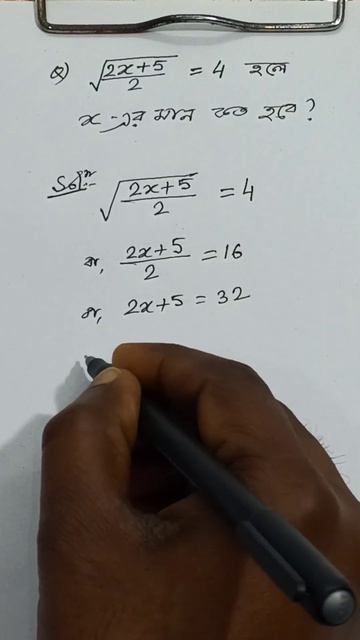 Q) √(2x+5)/2 = 4 হলে
x-এর মান কত হবে?
Solⁿ:- √(2x+5)/2 = 4
বা, (2x+5)/2 = 16
বা, 2x+5 = 32